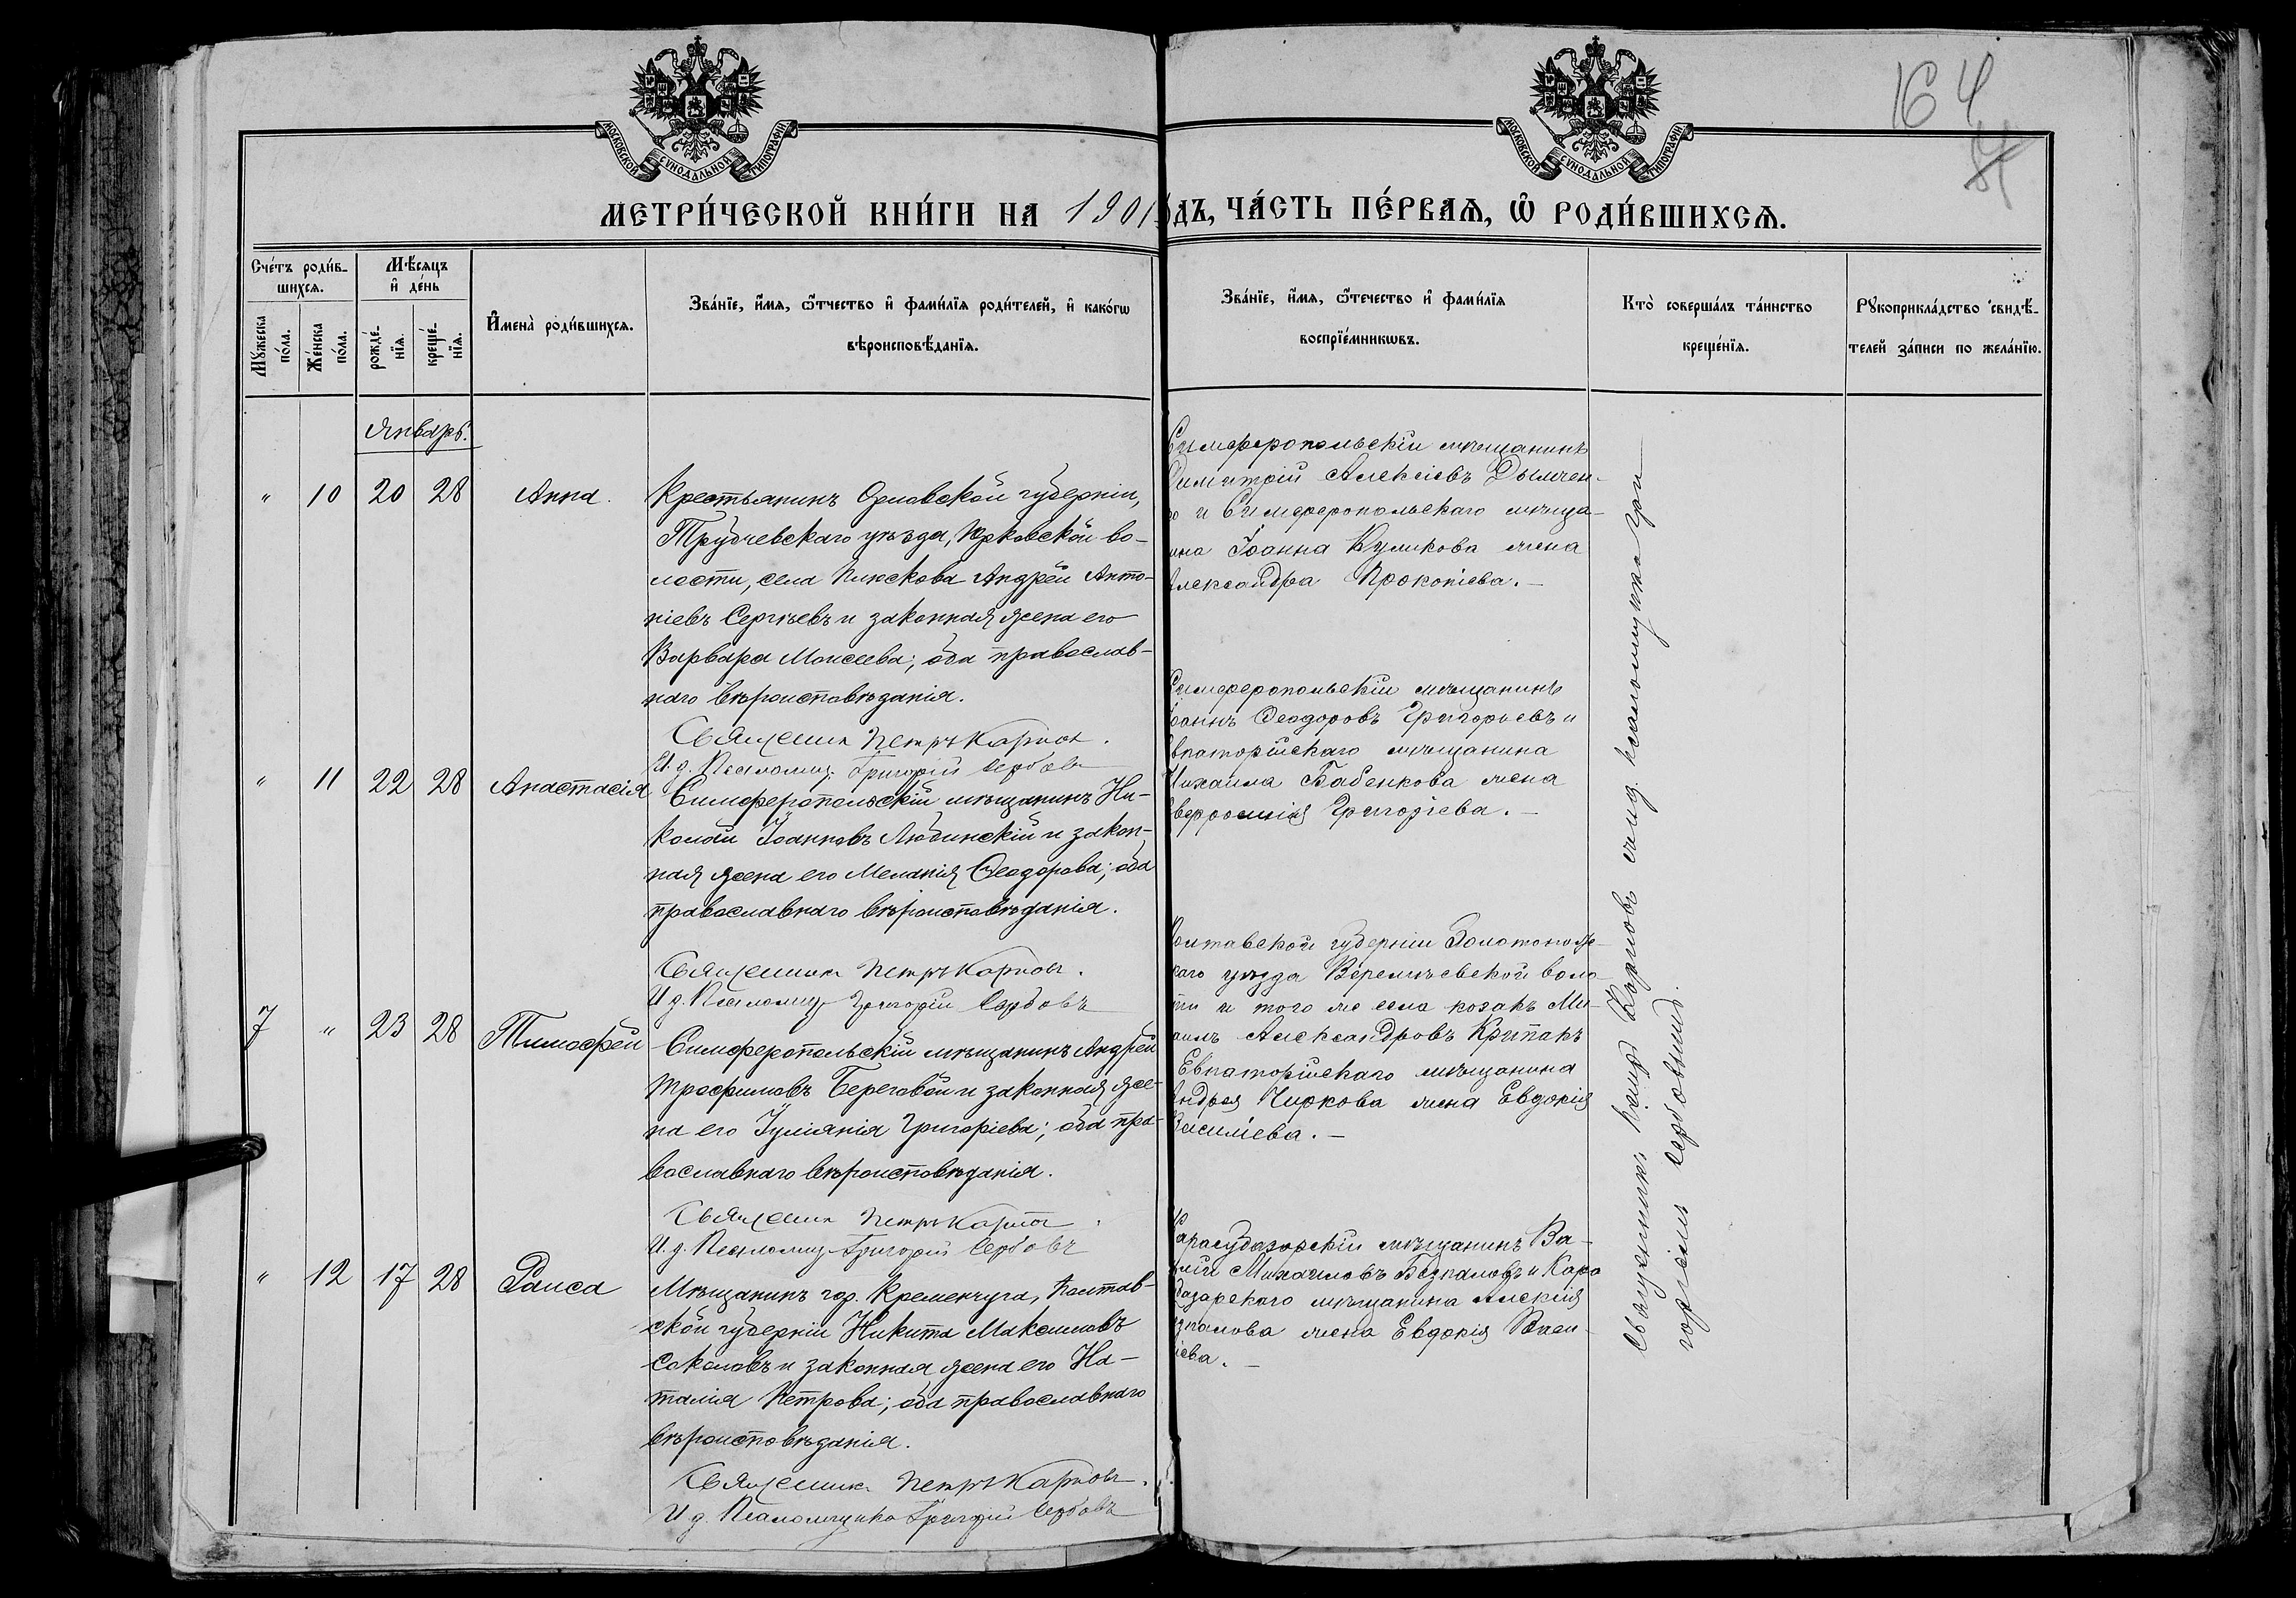 164
МОСКОВСКОЙ СѴНОДАЛЬНОЙ ТИПОГРАФІИ
МОСКОВСКОЙ СѴНОДАЛЬНОЙ ТИПОГРАФІИ
МЕТРИ́ЧЕСКОЙ КНИ́ГИ НА 1901
дъ, ЧА́СТЬ ПЕ́РВАѦ, Ѡ҆ РОДИ́ВШИХСѦ.
Сче́тъ роди́в-
шихсѧ.
Мꙋ́жеска
по́ла.
Же́нска
по́ла.
Мѣ́сѧцъ
и҆ де́нь
рожде́-
нїѧ.
креще́-
нїѧ.
И҆мена̀ роди́вшихсѧ.
Зва́нїе, и҆́мѧ, ѻ҆́тчество и҆ фами́лїѧ роди́телей, и҆ како́гѡ
вѣроисповѣ́данїѧ.
Зва́нїе, и҆́мѧ, ѻ҆́течество и҆ фами́лїѧ
воспрїе́мникѡвъ.
Кто̀ соверша́лъ та́инство
креще́нїѧ.
Рꙋкоприкла́дство свидѣ́-
телей за́писи по жела́нїю.
Январь.
" 10 20 28 Анна.
Крестьянинъ Орловской губерніи,
Трубчевскаго уѣзда, Юрковской во-
лости, села Плюскова Андрей Анто-
ніевъ Сергѣевъ и законная жена его
Варвара Моисеева; оба православ-
наго вѣроисповѣданія.
Священникъ Петръ Карповъ.
И. д. Псаломщ. Григорій Сербовъ
Симферопольскій мѣщанинъ
Димитрій Алексіевъ Дымчен-
ко и Симферопольскаго мѣща-
нина Іоанна Куликова жена
Александра Прокопіева.
" 11 22 28 Анастасія
Симферопольскій мѣщанинъ Ни-
колай Іоанновъ Любинскій и закон-
ная жена его Меланія Ѳеодорова; оба
православнаго вѣроисповѣданія.
Священникъ Петръ Карповъ.
И. д. Псаломщ. Григорій Сербовъ
Симферопольскій мѣщанинъ
Іоаннъ Ѳеодоровъ Григорьевъ и
Евпаторійскаго мѣщанина
Михаила Бабенкова жена
Евфросинія Григоріева.
7 " 23 28 Тимофей
Симферопольскій мѣщанинъ Андрей
Трофимовъ Береговой и законная же-
на его Іуліанія Григоріева; оба пра-
вославнаго вѣроисповѣданія.
Священникъ Петръ Карповъ.
И. д. Псаломщ. Григорій Сербовъ
Полтавской губерніи Золотонож-
скаго уѣзда Веремѣевской воло-
сти и того же села козакъ Ми-
хаилъ Александровъ Крипакъ
Евпаторійскаго мѣщанина
Андрея Чиркова жена Евдокія
Василіева.
" 12 17 28 Раиса
Мѣщанинъ гор. Кременчуга, Полтав-
ской губерніи Никита Максимовъ
Соколовъ и законная жена его На-
талія Петрова; оба православнаго
вѣроисповѣданія.
Священникъ Петръ Карповъ.
И. д. Псаломщика Григорій Сербовъ
Карасубазарскій мѣщанинъ Ва-
силій Михаиловъ Безпаловъ и Кара
базарскаго мѣщанина Алексія
зпалова жена Евдокія Васи-
ліева.
Священникъ Петръ Карповъ и. д. псаломщика Гри
горіемъ Сербовымъ.